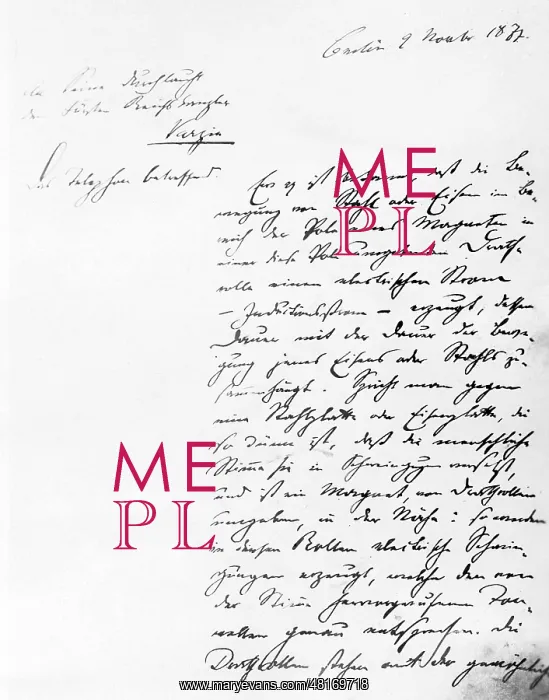 Berlin 9 Novbr 1877.
An Seine Durchlaucht
den Fürsten Reichskanzler
Varzin
Das Telephon betreffend.
Es ist bekannt, daß die Be-
wegung von Stahl oder Eisen im Be-
reich der Pole eines Magneten in
einer diese Pole umgebenden Draht-
rolle einen elektrischen Strom
– Induktionsstrom – erzeugt, dessen
Dauer mit der Dauer der Bewe-
gung jenes Eisens oder Stahls zu-
sammenhängt. Spricht man gegen
eine Stahlplatte oder Eisenplatte, die
so dünn ist, daß die menschliche
Stimme sie in Schwingungen versetzt,
und ist ein Magnet, von Drahtrollen
umgeben, in der Nähe: so werden
in diesen Rollen elektrische Schwin-
gungen erzeugt, welche den von
der Stimme hervorgerufenen Ton-
wellen genau entsprechen. Die
Drahtrollen stehen mit der gewöhnlichen
ME
PL
ME
PL
www.maryevans.com/48169718